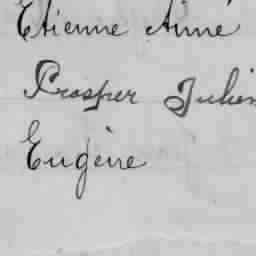 Etienne Aimé
Prosper Julien
Eugène